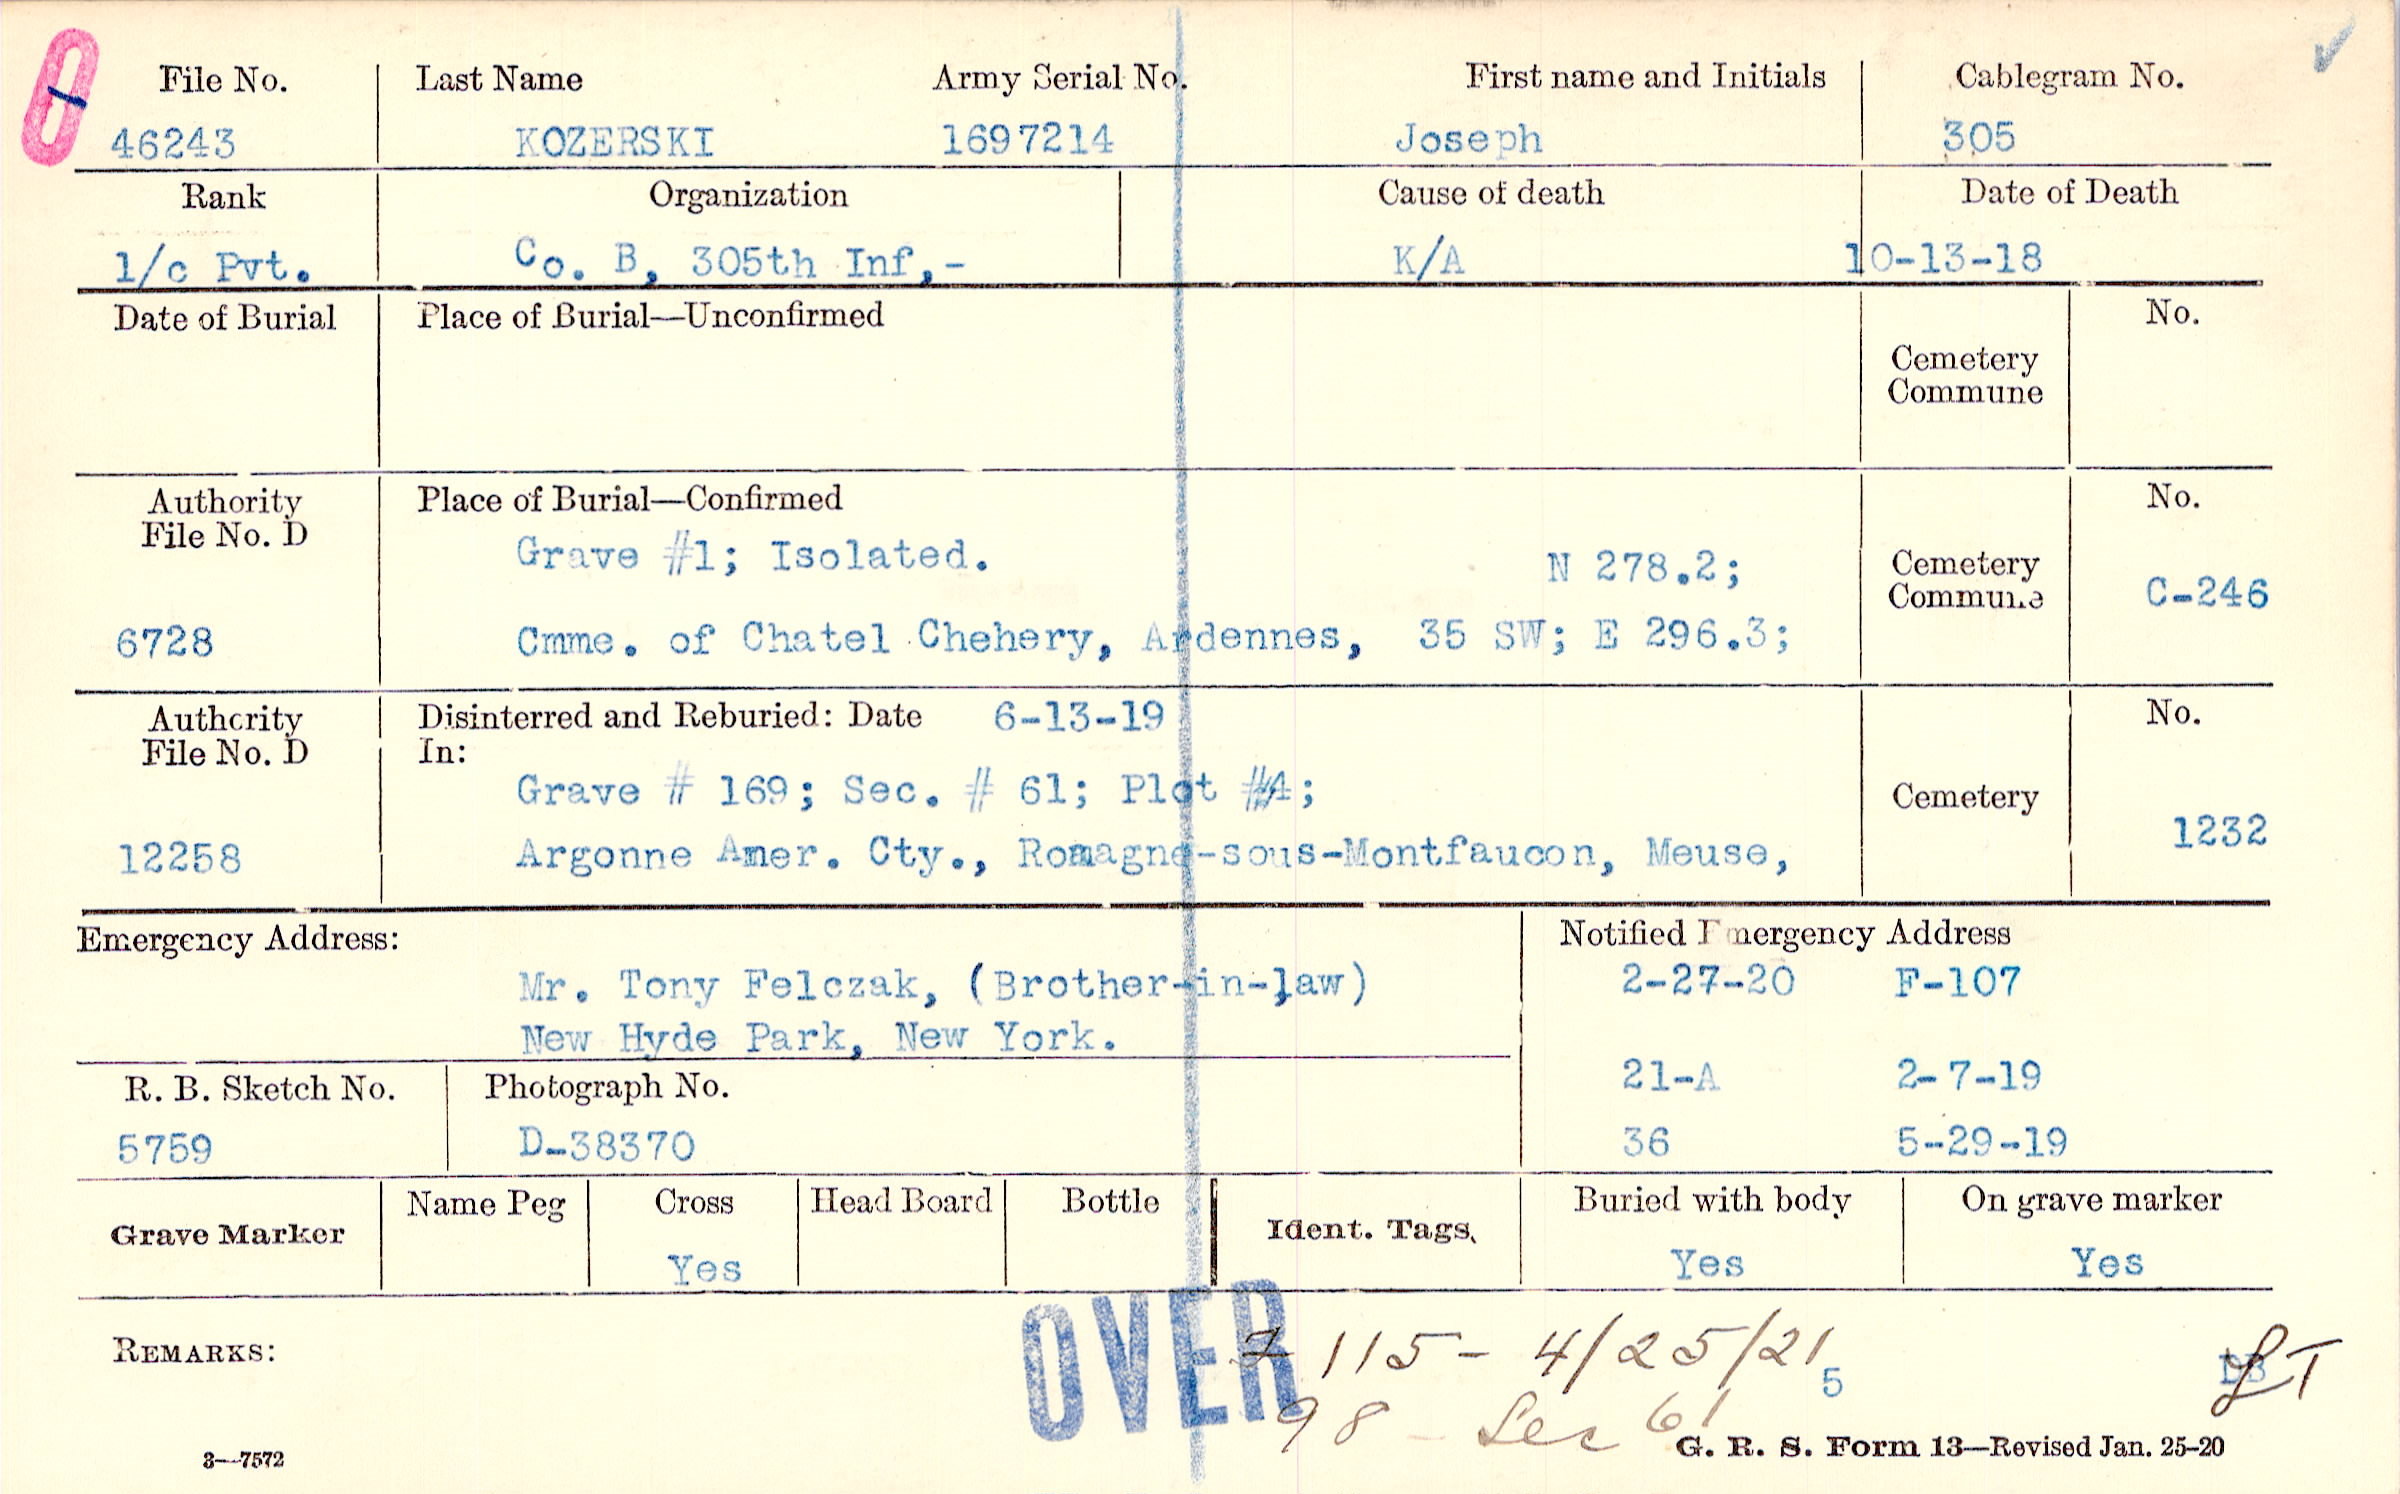 File No. Last Name Army Serial No. First name and Initials Cablegram No.
46243 KOZERSKI 1697214 Joseph 305
Rank Organization Cause of death Date of Death
1/c Pvt. Co. B, 305th Inf,- K/A 10-13-18
Date of Burial Place of Burial—Unconfirmed No.
Cemetery
Commune
Authority Place of Burial—Confirmed No.
File No. D
Grave #1; Isolated. N 278.2; Cemetery
Commune C-246
6728 Cmme. of Chatel Chehery, Ardennes, 35 SW; E 296.3;
Authority Disinterred and Reburied: Date 6-13-19 No.
File No. D In:
Grave # 169; Sec. # 61; Plot #4; Cemetery
1232
12258 Argonne Amer. Cty., Romagne-sous-Montfaucon, Meuse,
Emergency Address: Notified Emergency Address
Mr. Tony Felczak, (Brother-in-law) 2-27-20 F-107
New Hyde Park, New York.
21-A 2-7-19
R. B. Sketch No. Photograph No.
5759 D-38370 36 5-29-19
Grave Marker Name Peg Cross Head Board Bottle Ident. Tags. Buried with body On grave marker
Yes Yes Yes
OVER
REMARKS: 115- 4/25/21
5
98 - Sec 61
3—7572 G. R. S. Form 13—Revised Jan. 25-20